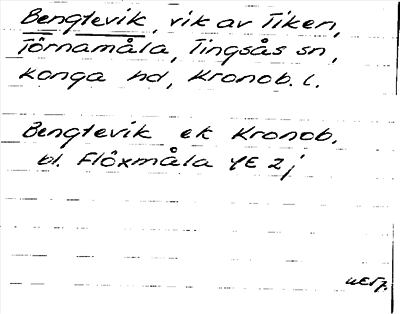 Bengtevik, vik av Tiken,
Törnamåla, Tingsås sn,
Konga hd, Kronob. l.
Bengtevik ek Kronob.
bl. Flöxmåla 4E 2j